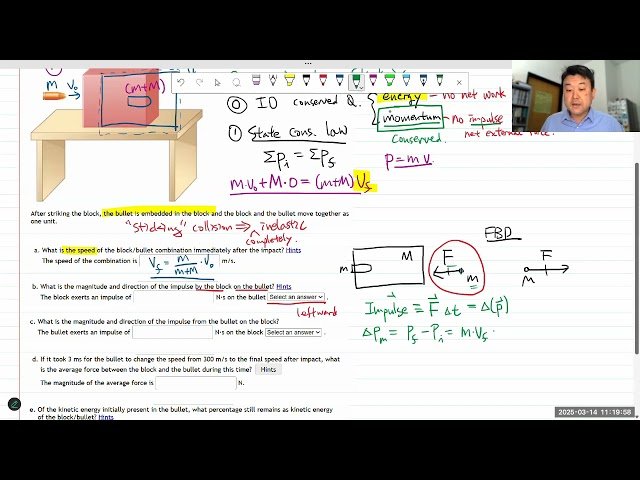 m v₀ (m+M)
⓪ ID conserved Q. { energy – no net work
momentum – no impulse
Conserved. net external force.
① State cons. law
Σpᵢ = Σp_f
P = m v
m·v₀ + M·0 = (m+M) v_f
After striking the block, the bullet is embedded in the block and the block and the bullet move together as
one unit.
"Sticking" collision ⇒ inelastic
completely.
a. What is the speed of the block/bullet combination immediately after the impact? Hints
The speed of the combination is v_f = m/(m+M) · v₀ m/s.
b. What is the magnitude and direction of the impulse by the block on the bullet? Hints
The block exerts an impulse of N·s on the bullet Select an answer
leftward
c. What is the magnitude and direction of the impulse from the bullet on the block?
The bullet exerts an impulse of N·s on the block Select an answer .
d. If it took 3 ms for the bullet to change the speed from 300 m/s to the final speed after impact, what
is the average force between the block and the bullet during this time? Hints
The magnitude of the average force is N.
e. Of the kinetic energy initially present in the bullet, what percentage still remains as kinetic energy
of the block/bullet? Hints
FBD
m M F m F M
Impulse ≡ F Δt = Δ(p)
Δp_m = P_f − P_i = m·v_f ·
2025-03-14 11:19:58